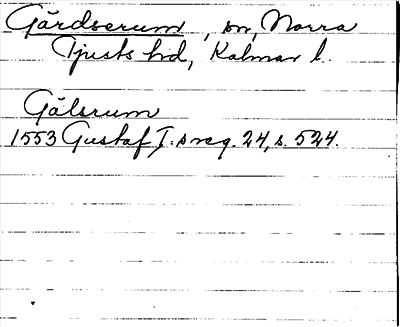 Gärdserum, sn, Norra
Tjusts hd, Kalmar l.
Gälsrum
1553 Gustaf I:s reg. 24, s. 524.